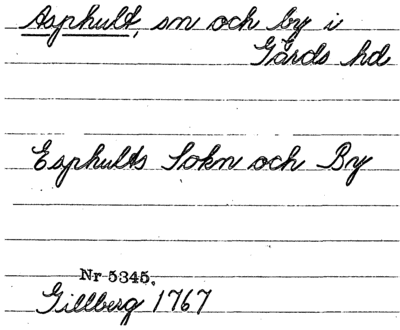 Asphult, sn och by i
Gärds hd
Esphults Sokn och By
Nr 5345.
Gillberg 1767